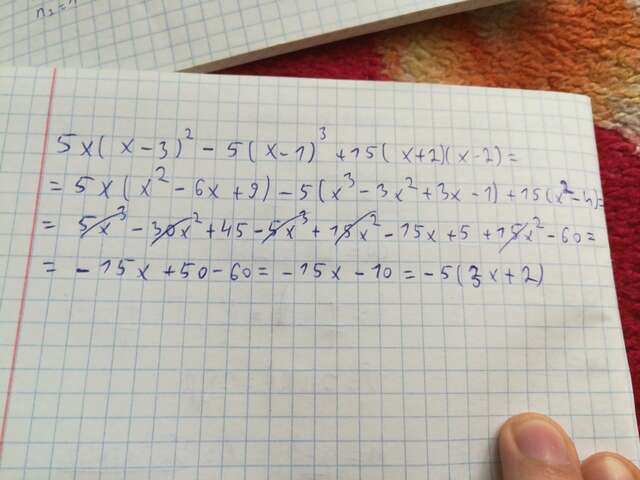 n₂=
5x(x-3)² - 5(x-1)³ +15(x+2)(x-2)=
= 5x(x² - 6x +9) - 5(x³ - 3x² +3x -1) +15(x² -4)=
= 5x³ - 30x² +45 - 5x³ +15x² -15x +5 +15x² -60=
= -15x +50-60 = -15x -10 = -5(3x+2)